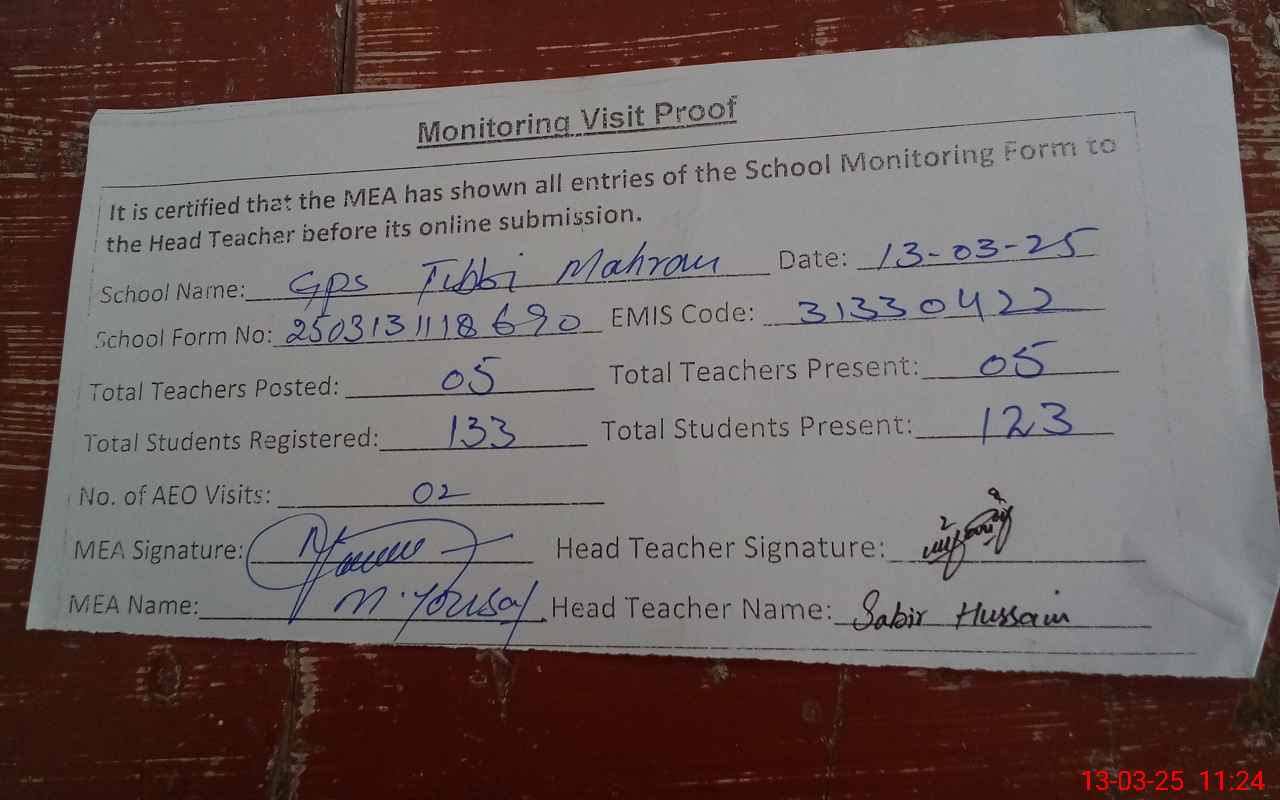 Monitoring Visit Proof
It is certified that the MEA has shown all entries of the School Monitoring Form to
the Head Teacher before its online submission.
School Name: GPS Tibbi Mahran Date: 13-03-25
School Form No: 2503131118690 EMIS Code: 31330422
Total Teachers Posted: 05 Total Teachers Present: 05
Total Students Registered: 133 Total Students Present: 123
No. of AEO Visits: 02
MEA Signature: Head Teacher Signature:
MEA Name: M. Yousaf Head Teacher Name: Sabir Hussain
13-03-25 11:24